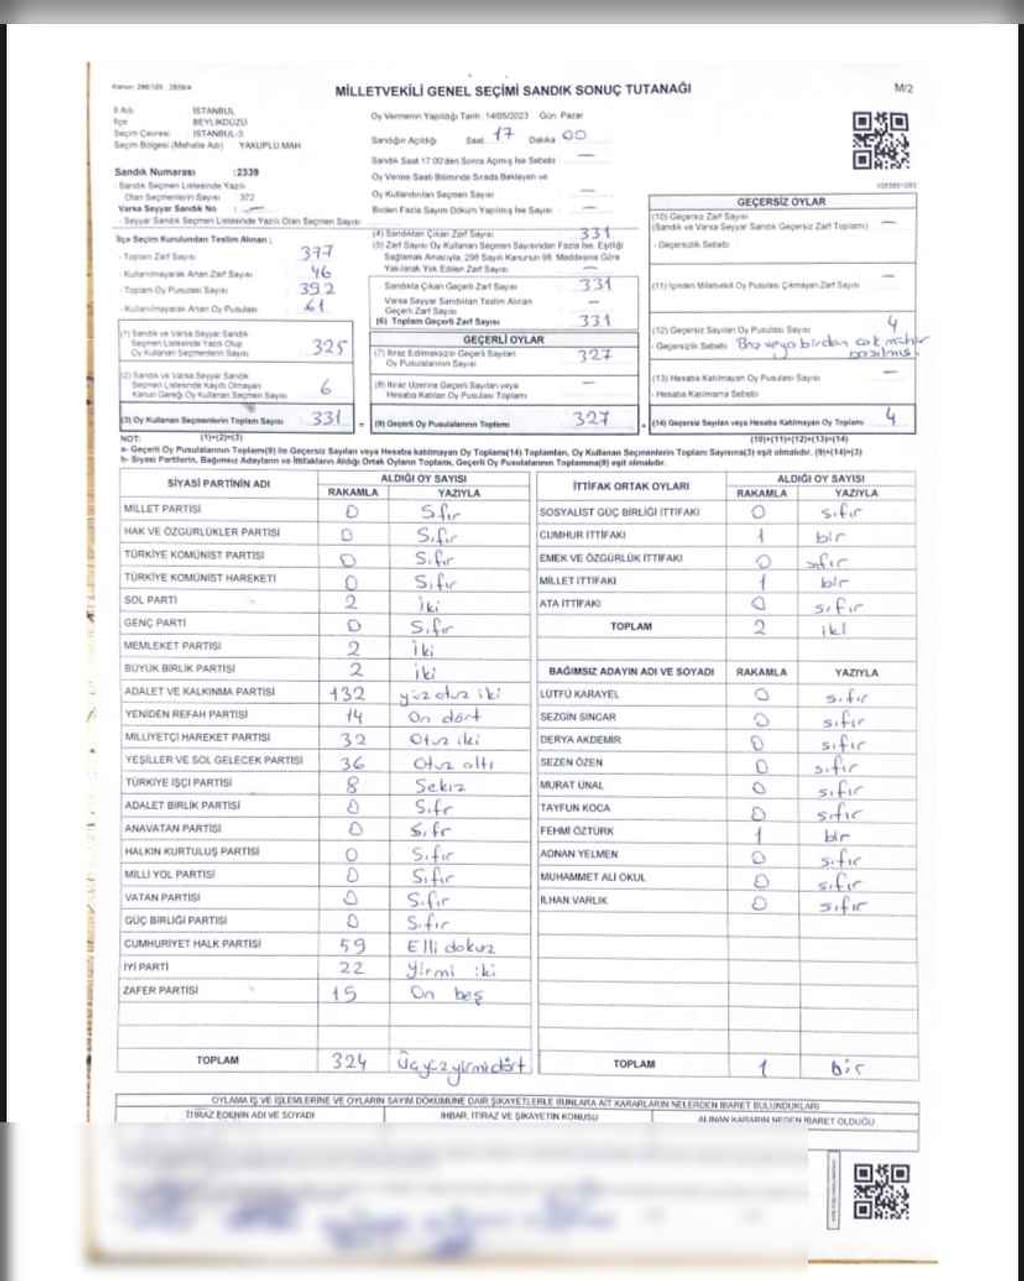 MİLLETVEKİLİ GENEL SEÇİMİ SANDIK SONUÇ TUTANAĞI
M/2
İli Adı İSTANBUL
İlçe BEYLİKDÜZÜ
Seçim Çevresi İSTANBUL-3
Seçim Bölgesi (Mahalle Adı) YAKUPLU MAH
Sandık Numarası :2339
Sandık Seçmen Listesinde Yazılı
Olan Seçmenlerin Sayısı 372
Varsa Seyyar Sandık No : —
Seyyar Sandık Seçmen Listesinde Yazılı Olan Seçmen Sayısı
İlçe Seçim Kurulundan Teslim Alınan ;
- Toplam Zarf Sayısı 377
- Kullanılmayarak Artan Zarf Sayısı 46
- Toplam Oy Pusulası Sayısı 392
- Kullanılmayarak Artan Oy Pusulası 61
(1) Sandık ve Varsa Seyyar Sandık
Seçmen Listesinde Yazılı Olup
Oy Kullanan Seçmenlerin Sayısı 325
(2) Sandık ve Varsa Seyyar Sandık
Seçmen Listesinde Kayıtlı Olmayan
Kanun Gereği Oy Kullanan Seçmen Sayısı 6
(3) Oy Kullanan Seçmenlerin Toplam Sayısı 331
Oy Vermenin Yapıldığı Tarih 14/05/2023 Gün Pazar
Sandığın Açıldığı Saat 17 Dakika 00
Sandık Saat 17:00'den Sonra Açılmış İse Sebebi —
Oy Verme Saati Bitiminde Sırada Bekleyen ve
Oy Kullandırılan Seçmen Sayısı —
Birden Fazla Sayım Döküm Yapılmış İse Sayısı —
(4) Sandıktan Çıkan Zarf Sayısı 331
(5) Zarf Sayısı Oy Kullanan Seçmen Sayısından Fazla İse, Eşitliği
Sağlamak Amacıyla, 298 Sayılı Kanunun 98. Maddesine Göre
Yakılarak Yok Edilen Zarf Sayısı —
Sandıkta Çıkan Geçerli Zarf Sayısı 331
Varsa Seyyar Sandıktan Teslim Alınan
Geçerli Zarf Sayısı —
(6) Toplam Geçerli Zarf Sayısı 331
GEÇERLİ OYLAR
(7) İtiraz Edilmeksizin Geçerli Sayılan
Oy Pusulalarının Sayısı 327
(8) İtiraz Üzerine Geçerli Sayılan veya
Hesaba Katılan Oy Pusulası Toplamı —
(9) Geçerli Oy Pusulalarının Toplamı 327
GEÇERSİZ OYLAR
(10) Geçersiz Zarf Sayısı
(Sandık ve Varsa Seyyar Sandık Geçersiz Zarf Toplamı) —
- Geçersizlik Sebebi
(11) İçinden Milletvekili Oy Pusulası Çıkmayan Zarf Sayısı —
(12) Geçersiz Sayılan Oy Pusulası Sayısı 4
- Geçersizlik Sebebi
(13) Hesaba Katılmayan Oy Pusulası Sayısı —
- Hesaba Katılmama Sebebi
(14) Geçersiz Sayılan veya Hesaba Katılmayan Oy Toplamı 4
NOT: (1)+(2)=(3) (10)+(11)+(12)+(13)=(14)
a- Geçerli Oy Pusulalarının Toplamı(9) ile Geçersiz Sayılan veya Hesaba katılmayan Oy Toplamı(14) Toplamları, Oy Kullanan Seçmenlerin Toplam Sayısına(3) eşit olmalıdır. (9)+(14)=(3)
b- Siyasi Partilerin, Bağımsız Adayların ve İttifakların Aldığı Ortak Oyların Toplamı, Geçerli Oy Pusulalarının Toplamına(9) eşit olmalıdır.
SİYASİ PARTİNİN ADI ALDIĞI OY SAYISI
RAKAMLA YAZIYLA
MİLLET PARTİSİ 0 Sıfır
HAK VE ÖZGÜRLÜKLER PARTİSİ 0 Sıfır
TÜRKİYE KOMÜNİST PARTİSİ 0 Sıfır
TÜRKİYE KOMÜNİST HAREKETİ 0 Sıfır
SOL PARTİ 2 İki
GENÇ PARTİ 0 Sıfır
MEMLEKET PARTİSİ 2 İki
BÜYÜK BİRLİK PARTİSİ 2 İki
ADALET VE KALKINMA PARTİSİ 132 yüz otuz iki
YENİDEN REFAH PARTİSİ 14 On dört
MİLLİYETÇİ HAREKET PARTİSİ 32 Otuz iki
YEŞİLLER VE SOL GELECEK PARTİSİ 36 Otuz altı
TÜRKİYE İŞÇİ PARTİSİ 8 Sekiz
ADALET BİRLİK PARTİSİ 0 Sıfr
ANAVATAN PARTİSİ 0 Sıfr
HALKIN KURTULUŞ PARTİSİ 0 Sıfır
MİLLİ YOL PARTİSİ 0 Sıfır
VATAN PARTİSİ 0 Sıfır
GÜÇ BİRLİĞİ PARTİSİ 0 Sıfır
CUMHURİYET HALK PARTİSİ 59 Elli dokuz
İYİ PARTİ 22 Yirmi iki
ZAFER PARTİSİ 15 On beş
TOPLAM 324 Üçyüzyirmidört
İTTİFAK ORTAK OYLARI ALDIĞI OY SAYISI
RAKAMLA YAZIYLA
SOSYALİST GÜÇ BİRLİĞİ İTTİFAKI 0 sıfır
CUMHUR İTTİFAKI 1 bir
EMEK VE ÖZGÜRLÜK İTTİFAKI 0 sıfır
MİLLET İTTİFAKI 1 bir
ATA İTTİFAKI 0 sıfır
TOPLAM 2 iki
BAĞIMSIZ ADAYIN ADI VE SOYADI RAKAMLA YAZIYLA
LÜTFÜ KARAYEL 0 sıfır
SEZGİN SİNCAR 0 sıfır
DERYA AKDEMİR 0 sıfır
SEZEN ÖZEN 0 sıfır
MURAT ÜNAL 0 sıfır
TAYFUN KOCA 0 sıfır
FEHMİ ÖZTÜRK 1 bir
ADNAN YELMEN 0 sıfır
MUHAMMET ALİ OKUL 0 sıfır
İLHAN VARLIK 0 sıfır
TOPLAM 1 bir
OYLAMA İŞ VE İŞLEMLERİNE VE OYLARIN SAYIM DÖKÜMÜNE DAİR ŞİKAYETLERLE BUNLARA AİT KARARLARIN NELERDEN İBARET BULUNDUKLARI
İTİRAZ EDENİN ADI VE SOYADI İHBAR, İTİRAZ VE ŞİKAYETİN KONUSU ALINAN KARARIN NEDEN İBARET OLDUĞU